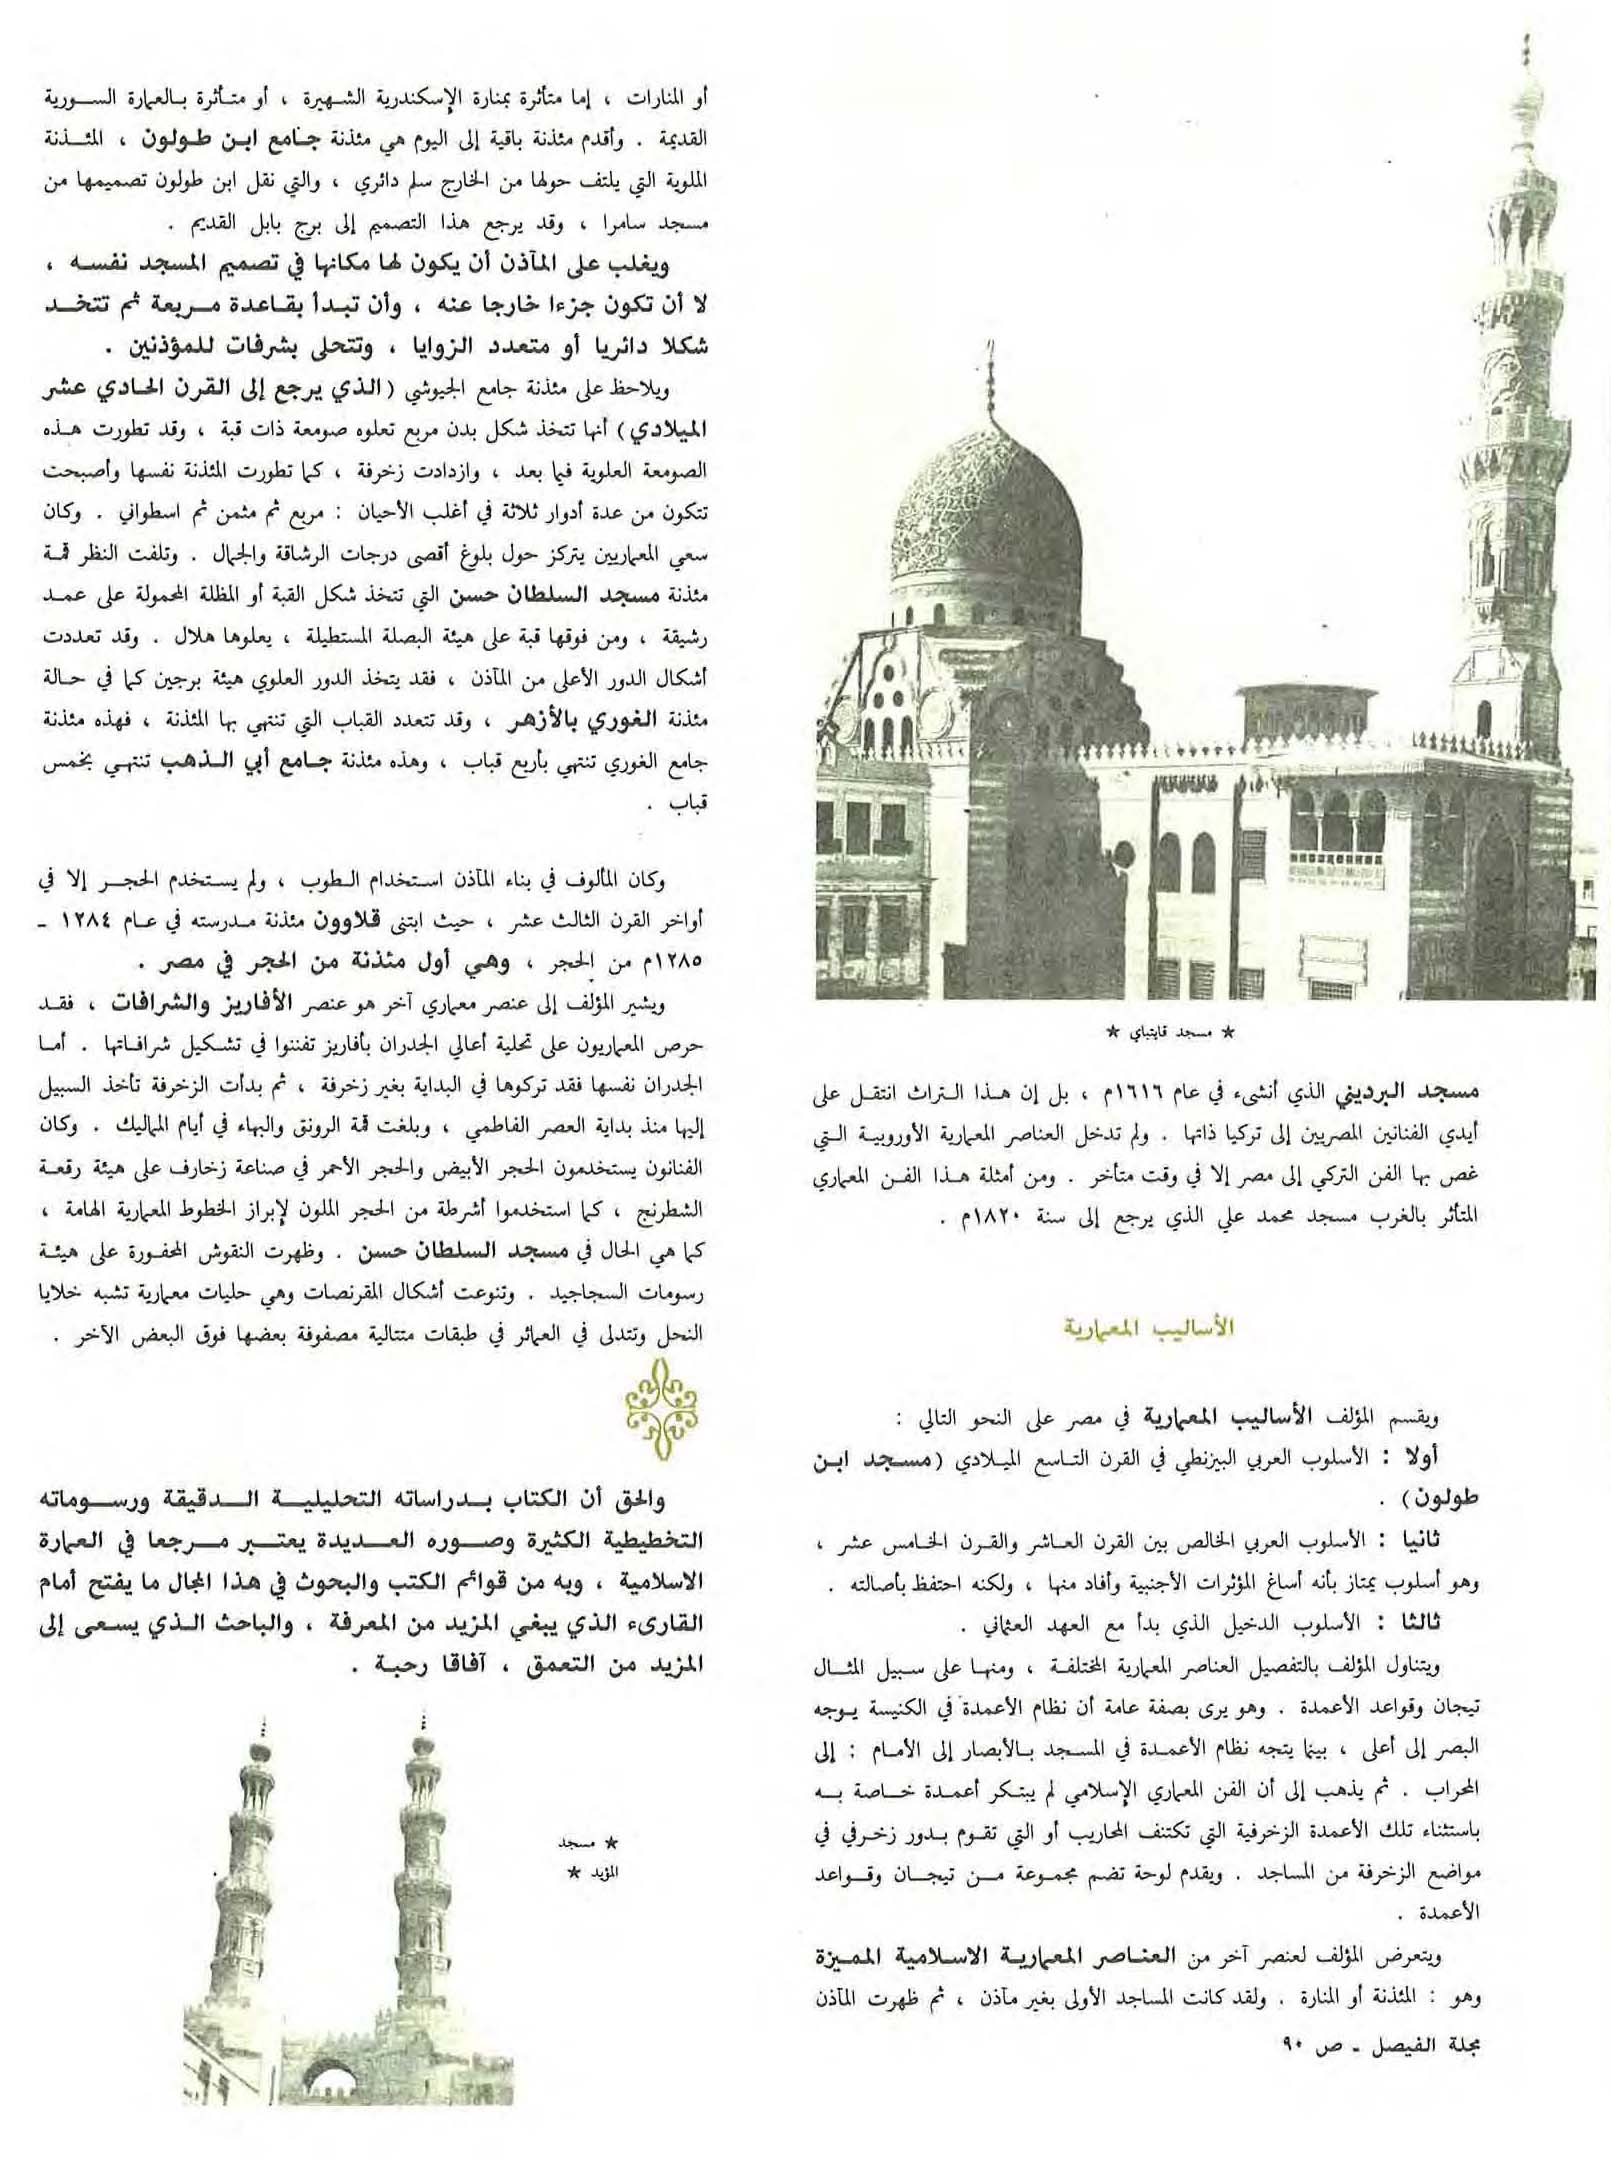 ★ مسجد قايتباي ★
مسجد البرديني الذي أنشىء في عام ١٦١٦م ، بل إن هذا التراث انتقل على
أيدي الفنانين المصريين إلى تركيا ذاتها . ولم تدخل العناصر المعمارية الأوروبية التي
غص بها الفن التركي إلى مصر إلا في وقت متأخر . ومن أمثلة هذا الفن المعماري
المتأثر بالغرب مسجد محمد علي الذي يرجع إلى سنة ١٨٢٠م .
الأساليب المعمارية
ويقسم المؤلف الأساليب المعمارية في مصر على النحو التالي :
أولا : الأسلوب العربي البيزنطي في القرن التاسع الميلادي (مسجد ابن
طولون) .
ثانيا : الأسلوب العربي الخالص بين القرن العاشر والقرن الخامس عشر ،
وهو أسلوب يمتاز بأنه أساغ المؤثرات الأجنبية وأفاد منها ، ولكنه احتفظ بأصالته .
ثالثا : الأسلوب الدخيل الذي بدأ مع العهد العثماني .
ويتناول المؤلف بالتفصيل العناصر المعمارية المختلفة ، ومنها على سبيل المثال
تيجان وقواعد الأعمدة . وهو يرى بصفة عامة أن نظام الأعمدة في الكنيسة يوجه
البصر إلى أعلى ، بينما يتجه نظام الأعمدة في المسجد بالأبصار إلى الأمام : إلى
المحراب . ثم يذهب إلى أن الفن المعماري الإسلامي لم يبتكر أعمدة خاصة به
باستثناء تلك الأعمدة الزخرفية التي تكتنف المحاريب أو التي تقوم بدور زخرفي في
مواضع الزخرفة من المساجد . ويقدم لوحة تضم مجموعة من تيجان وقواعد
الأعمدة .
ويتعرض المؤلف لعنصر آخر من العناصر المعمارية الاسلامية المميزة
وهو : المئذنة أو المنارة . ولقد كانت المساجد الأولى بغير مآذن ، ثم ظهرت المآذن
مجلة الفيصل - ص ٩٠
أو المنارات ، إما متأثرة بمنارة الإسكندرية الشهيرة ، أو متأثرة بالعمارة السورية
القديمة . وأقدم مئذنة باقية إلى اليوم هي مئذنة جامع ابن طولون ، المئذنة
الملوية التي يلتف حولها من الخارج سلم دائري ، والتي نقل ابن طولون تصميمها من
مسجد سامرا ، وقد يرجع هذا التصميم إلى برج بابل القديم .
ويغلب على المآذن أن يكون لها مكانها في تصميم المسجد نفسه ،
لا أن تكون جزءا خارجا عنه ، وأن تبدأ بقاعدة مربعة ثم تتخذ
شكلا دائريا أو متعدد الزوايا ، وتتحلى بشرفات للمؤذنين .
ويلاحظ على مئذنة جامع الجيوشي (الذي يرجع إلى القرن الحادي عشر
الميلادي) أنها تتخذ شكل بدن مربع تعلوه صومعة ذات قبة ، وقد تطورت هذه
الصومعة العلوية فيما بعد ، وازدادت زخرفة ، كما تطورت المئذنة نفسها وأصبحت
تتكون من عدة أدوار ثلاثة في أغلب الأحيان : مربع ثم مثمن ثم اسطواني . وكان
سعي المعماريين يتركز حول بلوغ أقصى درجات الرشاقة والجمال . وتلفت النظر قمة
مئذنة مسجد السلطان حسن التي تتخذ شكل القبة أو المظلة المحمولة على عمد
رشيقة ، ومن فوقها قبة على هيئة البصلة المستطيلة ، يعلوها هلال . وقد تعددت
أشكال الدور الأعلى من المآذن ، فقد يتخذ الدور العلوي هيئة برجين كما في حالة
مئذنة الغوري بالأزهر ، وقد تتعدد القباب التي تنتهي بها المئذنة ، فهذه مئذنة
جامع الغوري تنتهي بأربع قباب ، وهذه مئذنة جامع أبي الذهب تنتهي بخمس
قباب .
وكان المألوف في بناء المآذن استخدام الطوب ، ولم يستخدم الحجر إلا في
أواخر القرن الثالث عشر ، حيث ابتنى قلاوون مئذنة مدرسته في عام ١٢٨٤ -
١٢٨٥م من الحجر ، وهي أول مئذنة من الحجر في مصر .
ويشير المؤلف إلى عنصر معماري آخر هو عنصر الأفاريز والشرافات ، فقد
حرص المعماريون على تحلية أعالي الجدران بأفاريز تفننوا في تشكيل شرافاتها . أما
الجدران نفسها فقد تركوها في البداية بغير زخرفة ، ثم بدأت الزخرفة تأخذ السبيل
إليها منذ بداية العصر الفاطمي ، وبلغت قمة الرونق والبهاء في أيام المماليك . وكان
الفنانون يستخدمون الحجر الأبيض والحجر الأحمر في صناعة زخارف على هيئة رقعة
الشطرنج ، كما استخدموا أشرطة من الحجر الملون لإبراز الخطوط المعمارية الهامة ،
كما هي الحال في مسجد السلطان حسن . وظهرت النقوش المحفورة على هيئة
رسومات السجاجيد . وتنوعت أشكال المقرنصات وهي حليات معمارية تشبه خلايا
النحل وتتدلى في العمائر في طبقات متتالية مصفوفة بعضها فوق البعض الآخر .
والحق أن الكتاب بدراساته التحليلية الدقيقة ورسوماته
التخطيطية الكثيرة وصوره العديدة يعتبر مرجعا في العمارة
الاسلامية ، وبه من قوائم الكتب والبحوث في هذا المجال ما يفتح أمام
القارىء الذي يبغي المزيد من المعرفة ، والباحث الذي يسعى إلى
المزيد من التعمق ، آفاقا رحبة .
★ مسجد
المؤيد ★